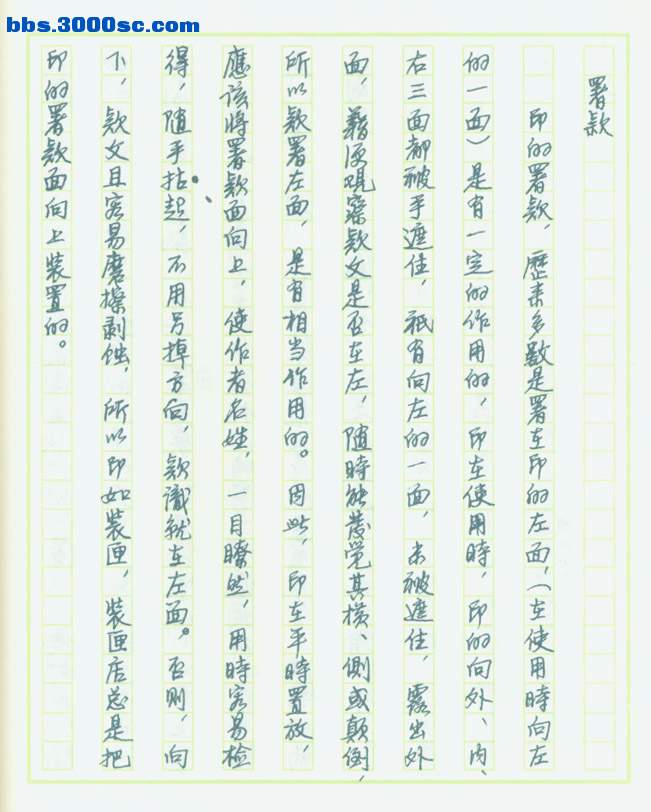 bbs.3000sc.com
署款
印的署款，歷来多數是署在印的左面，（在使用時向左
的一面）是有一定的作用的，印在使用時，印的向外、内、
右三面都被手遮住，祇有向左的一面，未被遮住，露出外
面，藉便覌察款文是否在左，随時能發覚其横、側或顛倒，
所以款署左面，是有相当作用的。因此，印在平時置放，
應该將署款面向上，使作者名姓，一目瞭然，用時容易檢
得，随手拈起，不用另掉方向，款識就在左面。否則，向
下，款文且容易磨擦剥蝕，所以印如装匣，装匣店总是把
印的署款面向上装置的。